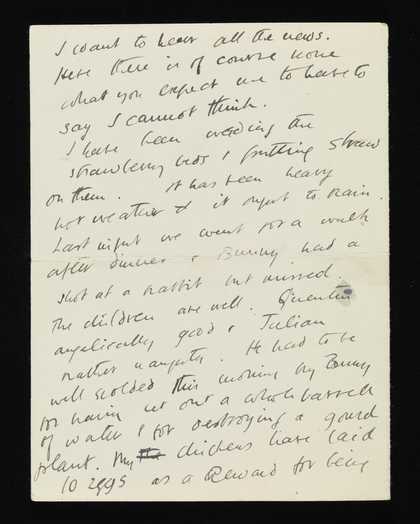 I want to hear all the news.
Here there is of course none
what you expect me to have to
say I cannot think.
I have been weeding the
strawberry beds & putting straw
on them. It has been heavy
hot weather & it ought to rain.
Last night we went for a walk
after dinner & Bunny had a
shot at a rabbit but missed.
The children are well. Quentin
angelically good & Julian
rather naughty. He had to be
well scolded this morning by Bunny
for having let out a whole barrell
of water & for destroying a gourd
plant. My chickens have laid
10 eggs as a Reward for being